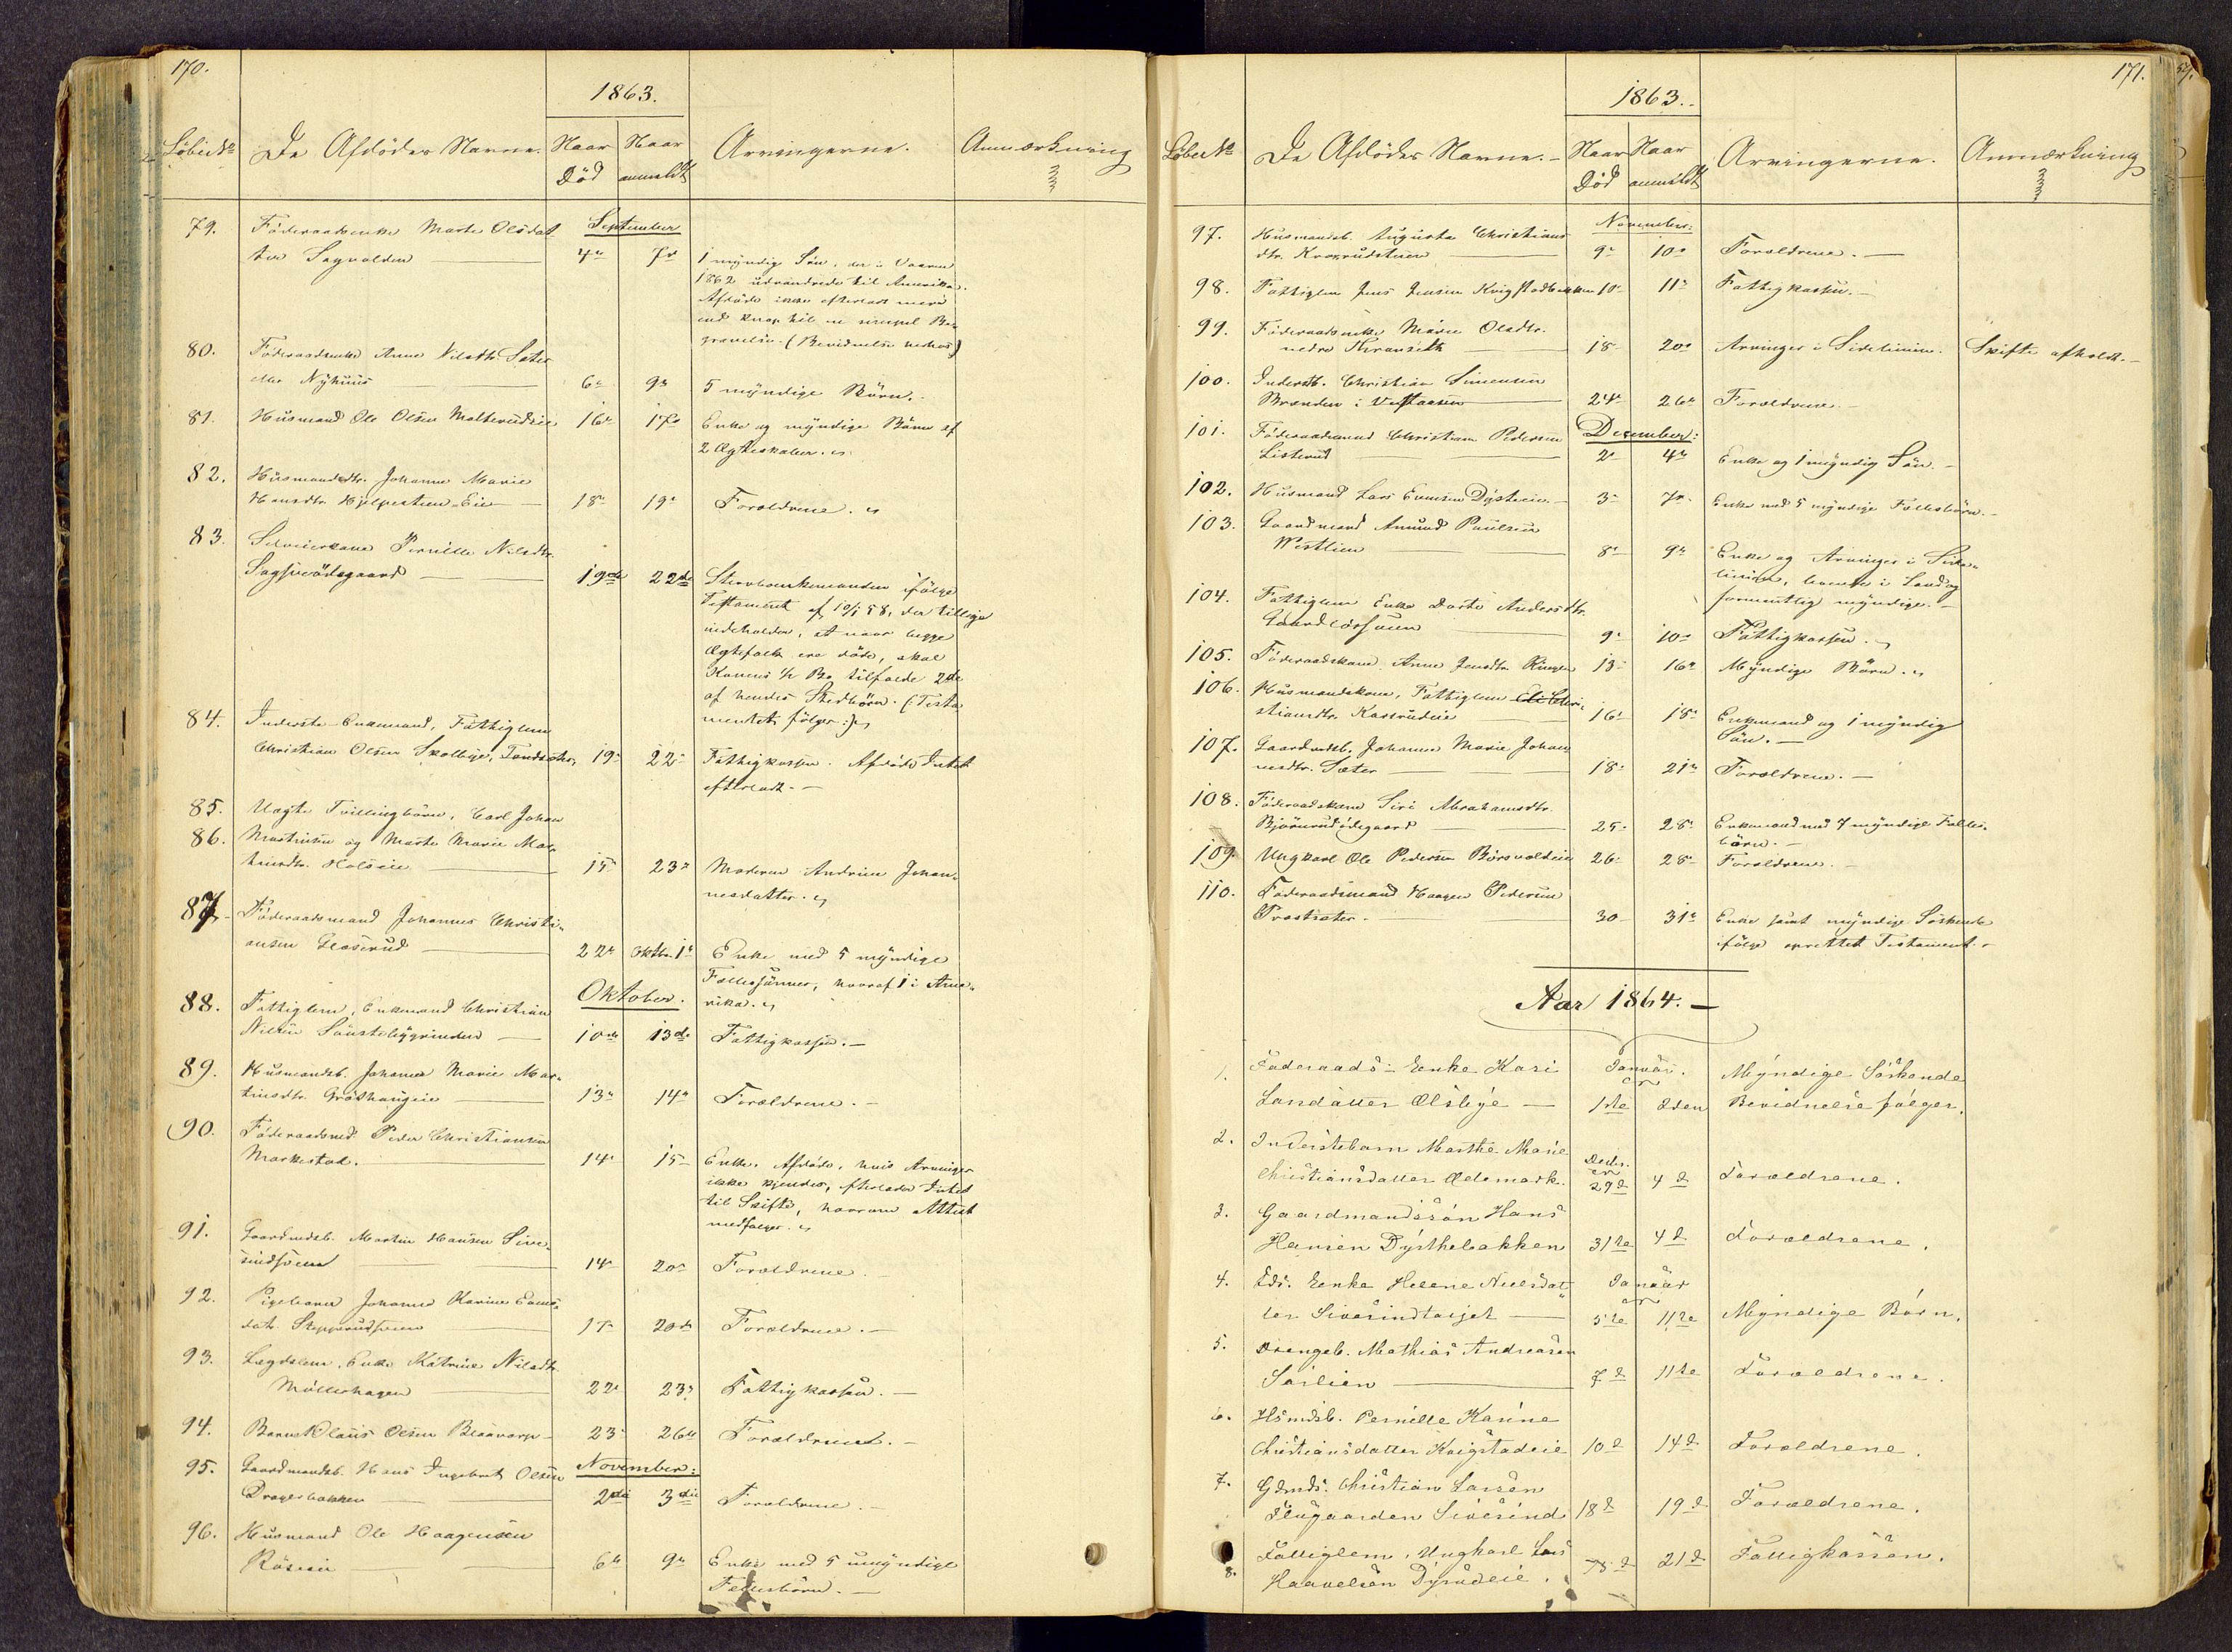 170.
1863.
Löbe No De Afdödes Navne. Naar Död Naar anmeldt Arvingerne. Anmærkning
September
79. Föderaadsenke Marte Olsdat
ter Sagvolden 4de 7de 1 myndig Sön, der i Vaaren
1862 udvandrede til Amerika.
Afdöde ikke efterladt mere
end knap til en simpel Be-
gravelse. (Bevidnelse )
80. Föderaadsenke Anne Nilsdtr. Sæter
eller Nyhuus 6te 9de 5 myndige Börn.
81. Husmand Ole Olsen Malterudeie 16de 17de Enke og myndige Börn af
2 Ægteskaber.
82. Husmandsdtr. Johanne Marie
Hansdtr. Eie 18de 19de Forældrene.
83. Selveierkone Pernille Nilsdtr.
ödegaard 19de 22de Stervboenkemanden ifölge
Testament af 10/1 58, der tillige
indeholder, at naar begge
Ægtefolk ere döde, skal
Konens 1/2 Bo tilfalde 2de
af hendes Stedbörn. (Testa
mentet fölger:)
84. Inderste Enkemand, Fattiglem
Christian Olsen Skolbye, 19de 22de Fattigkassen. Afdöde Intet
efterladt.
85. Uægte Tvillingbörn, Carl Johan
86. og Marte Marie Mar
tinsdtr. 15de 23de Moderen Andrine Johan-
nesdatter.
87. Föderaadsmand Johannes Christi-
ansen Glæserud 22de Oktbr. 1ste Enke med 5 myndige
Fællessönner, hvoraf 1 i Ame-
rika.
Oktober.
88. Fattiglem, Enkemand Christian
Nilsen 10de 13de Fattigkassen.
89. Husmandsb. Johanne Marie Mar-
tinsdtr. Gröthaugeie 13de 14de Forældrene.
90. Föderaadsmd. Peder Christiansen
Markestad. 14de 15de Enke. Afdöde, hvis Arvinger
ikke kjendes, efterlader Intet
til Skifte, hvorom Attest
medfölger.
91. Gaardmdsb. Martin Hansen Sive-
sind 14de 20de Forældrene.
92. Pigebarn Johanne Karine Evens-
datr. 17de 20de Forældrene.
93. Lægdslem, Enke Katrine Nilsdtr.
Möllerhagen 22de 23de Fattigkassen.
94. Barn Olaus Olsen Blaavarp 23de 26de Forældrene.
November:
95. Gaardmandsb. Hans Ingebret Olsen
Dragerbakken 2den 3die Forældrene.
96. Husmand Ole Haagensen
Röseie 6te 9de Enke med 5 umyndige
Fællesbörn.
171.
1863.
Löbe No De Afdödes Navne. Naar Död Naar anmeldt Arvingerne. Anmærkning
November:
97. Husmandsb. Augusta Christians
dtr. 9de 10de Forældrene.
98. Fattiglem Jens Jensen Kvigstadbakken 10de 11te Fattigkassen.
99. Föderaadsenke Marie Olsdtr.
nedre 18de 20de Arvinger i Sidelinien. Skifte afholdt.
100. Inderstb. Christian Simensen
Brænden i 24de 26de Forældrene.
December:
101. Föderaadsmand Christian Pedersen
Listerud 2den 4de Enke og 1 myndig Sön.
102. Husmand Lars Evensen Dysteeie. 3die 7de Enke med 5 myndige Fællesbörn.
103. Gaardmand Amund Paulsen
Westlien 8de 9de Enke og Arvinger i Side-
linien, boende i Land og
formentlig myndige.
104. Fattiglem Enke Dorte Andersdtr.
9de 10de Fattigkassen.
105. Föderaadskone Anne Jensdtr. Ringen 13de 16de Myndige Börn.
106. Husmandskone, Fattiglem Eli Chri-
stiansdtr. Kasserudeie 16de 18de Enkemand og 1 myndig
Sön.
107. Gaardmdsb. Johanne Marie Johan
nesdtr. Sæter 18de 21de Forældrene.
108. Föderaadskone Siri Abrahamsdtr.
Björnerudödegaard 25de 28de Enkemand med 7 myndige Fælles-
börn.
109. Ungkarl Ole Pedersen Börsvoldeie 26de 28de Forældrene.
110. Föderaadsmand Haagen Pedersen
Præstsæter. 30 31te Enke samt myndige Söskende
ifölge oprettet Testament.
Aar 1864.
1. Föderaads-Enke Kari Januar. Myndige Söskende
Larsdatter Ælsbye 1ste 2den Bevidnelse fölger.
2. Inderstebarn Marthe Marie Decbr.
Christiansdatter Ødemark. 29d 4d Forældrene.
3. Gaardmandssön Hans
Hansen Dysthebakken 31te 4d Forældrene.
4. Fdr. Enke Helene Nielsdat- Januar
ter Sivesindtorjet 5te 11te Myndige Börn.
5. Drengeb. Mathias Andreasen
Sörlien 7d 11te Forældrene.
6. Hsmdsb. Pernille Karine
Christiansdatter Kvigstadeie 10d 14d Forældrene.
7. Gdmds. Christian Larsen
Flugaarden Sivesind 18d 19d Forældrene.
8. Fattiglem, Ungkarl Lars
Haavelsen Dyrudeie. 18d 21d Fattigkassen.